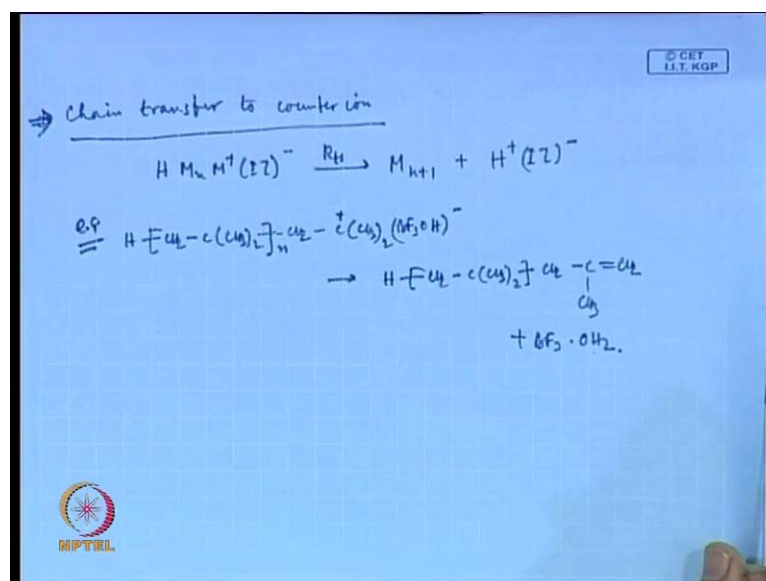 © CET
I.I.T. KGP
⇒ Chain transfer to counter ion
H Mn M⁺(IZ)⁻ —Rtt→ Mn+1 + H⁺(IZ)⁻
e.g H-[CH2-C(CH3)2]n-CH2-C⁺(CH3)2(BF3OH)⁻
→ H-[CH2-C(CH3)2]-CH2-C=CH2
|
CH3
+ BF3·OH2.
NPTEL